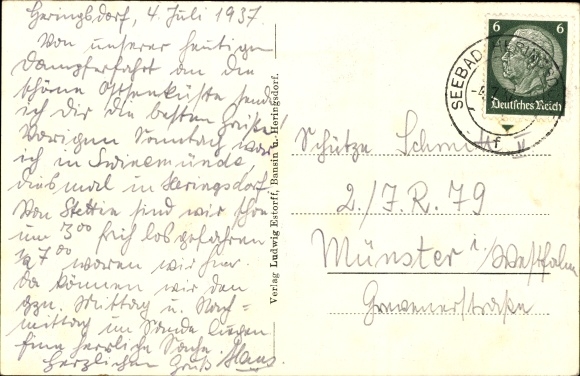 Heringsdorf, 4. Juli 1937.
Von unserer heutigen
Dampferfahrt an die
schöne Ostseeküste send
ich dir die besten Grüße!
Vorigen Sonntag war
ich in Swinemünde
dies mal in Heringsdorf
Von Stettin sind wir schon
um 3⁰⁰ früh losgefahren
½ 7⁰⁰ waren wir hier.
Da können wir den
gzn. Mittag u. Nach-
mittag im Sande liegen
Eine herrliche Sache.
Herzlichen Gruß Hans.
Verlag Ludwig Estorff, Bansin u. Heringsdorf.
6 6
Deutsches Reich
SEEBAD HERINGSDORF
f
Schütze Schmitt
2./J.R. 79
Münster i. Westfalen
Grevenerstraße